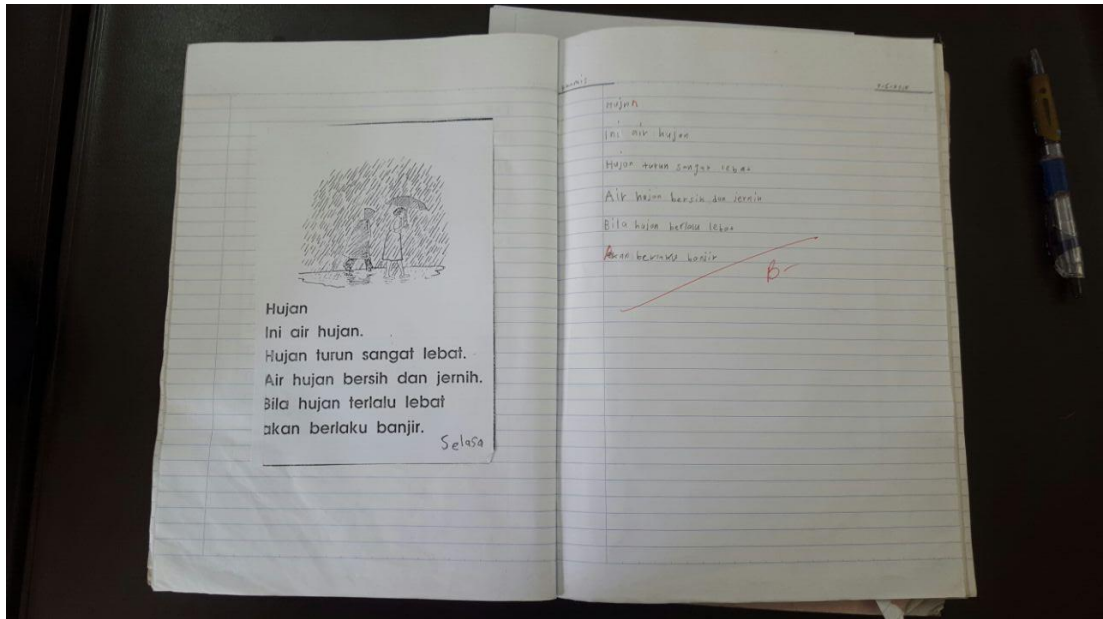 Hujan
Ini air hujan.
Hujan turun sangat lebat.
Air hujan bersih dan jernih.
Bila hujan terlalu lebat
akan berlaku banjir.
Selasa
Hujan
Ini air hujan
Hujan turun sangat lebat
Air hujan bersih dan jernih
Bila hujan berlalu lebat
Akan berlaku banjir
B-